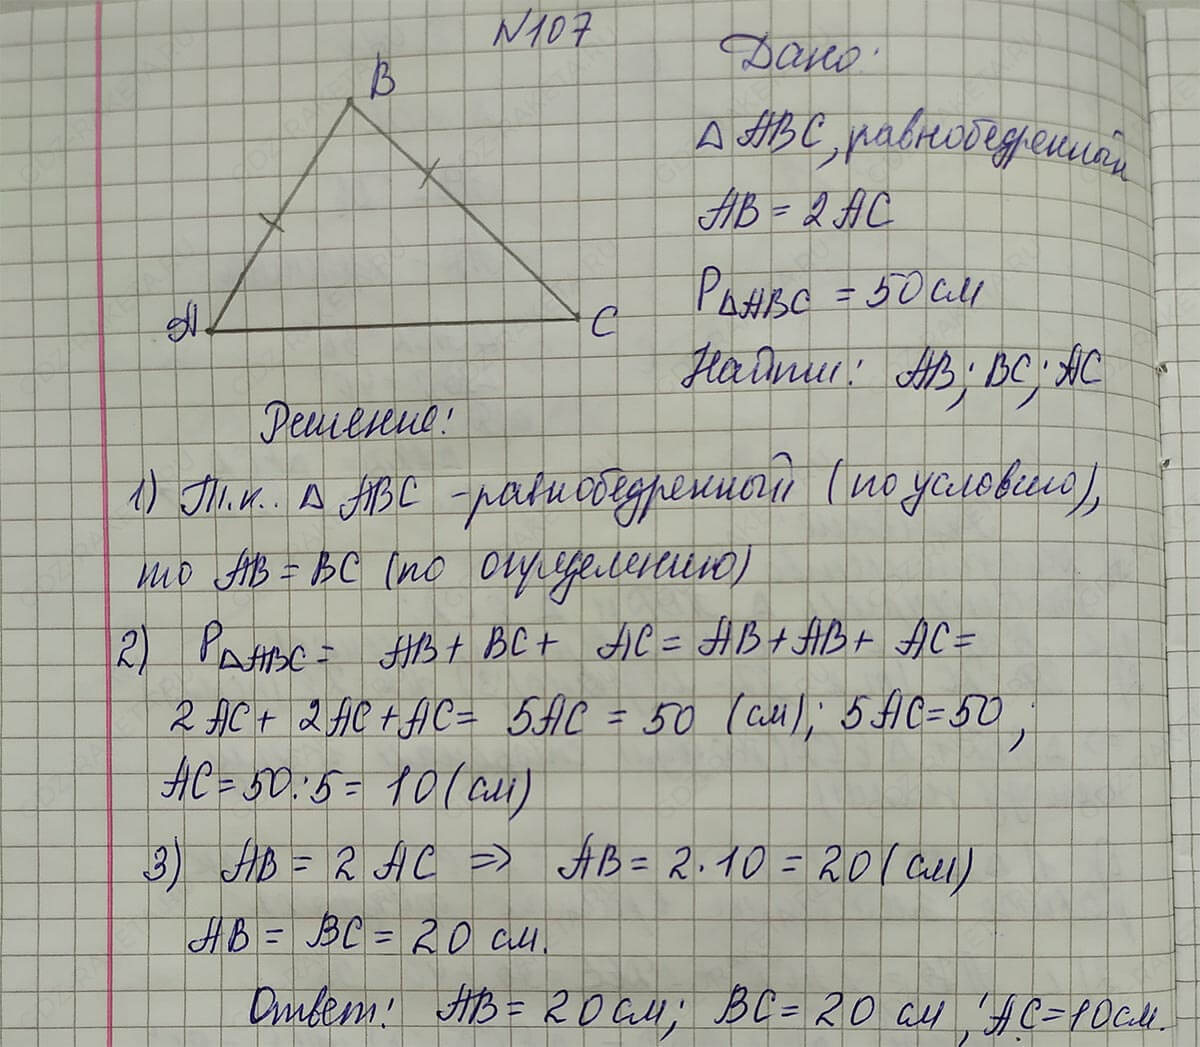 N107
B
A
C
Дано:
△ ABC, равнобедренный
AB = 2 AC
P△ABC = 50 см
Найти: AB; BC; AC
Решение:
1) Т.к.. △ ABC - равнобедренный (по условию),
то AB = BC (по определению)
2) P△ABC = AB + BC + AC = AB + AB + AC =
2 AC + 2AC + AC = 5AC = 50 (см); 5AC = 50 ;
AC = 50 : 5 = 10 (см)
3) AB = 2 AC => AB = 2 · 10 = 20 (см)
AB = BC = 20 см.
Ответ: AB = 20 см; BC = 20 см ; AC = 10 см.